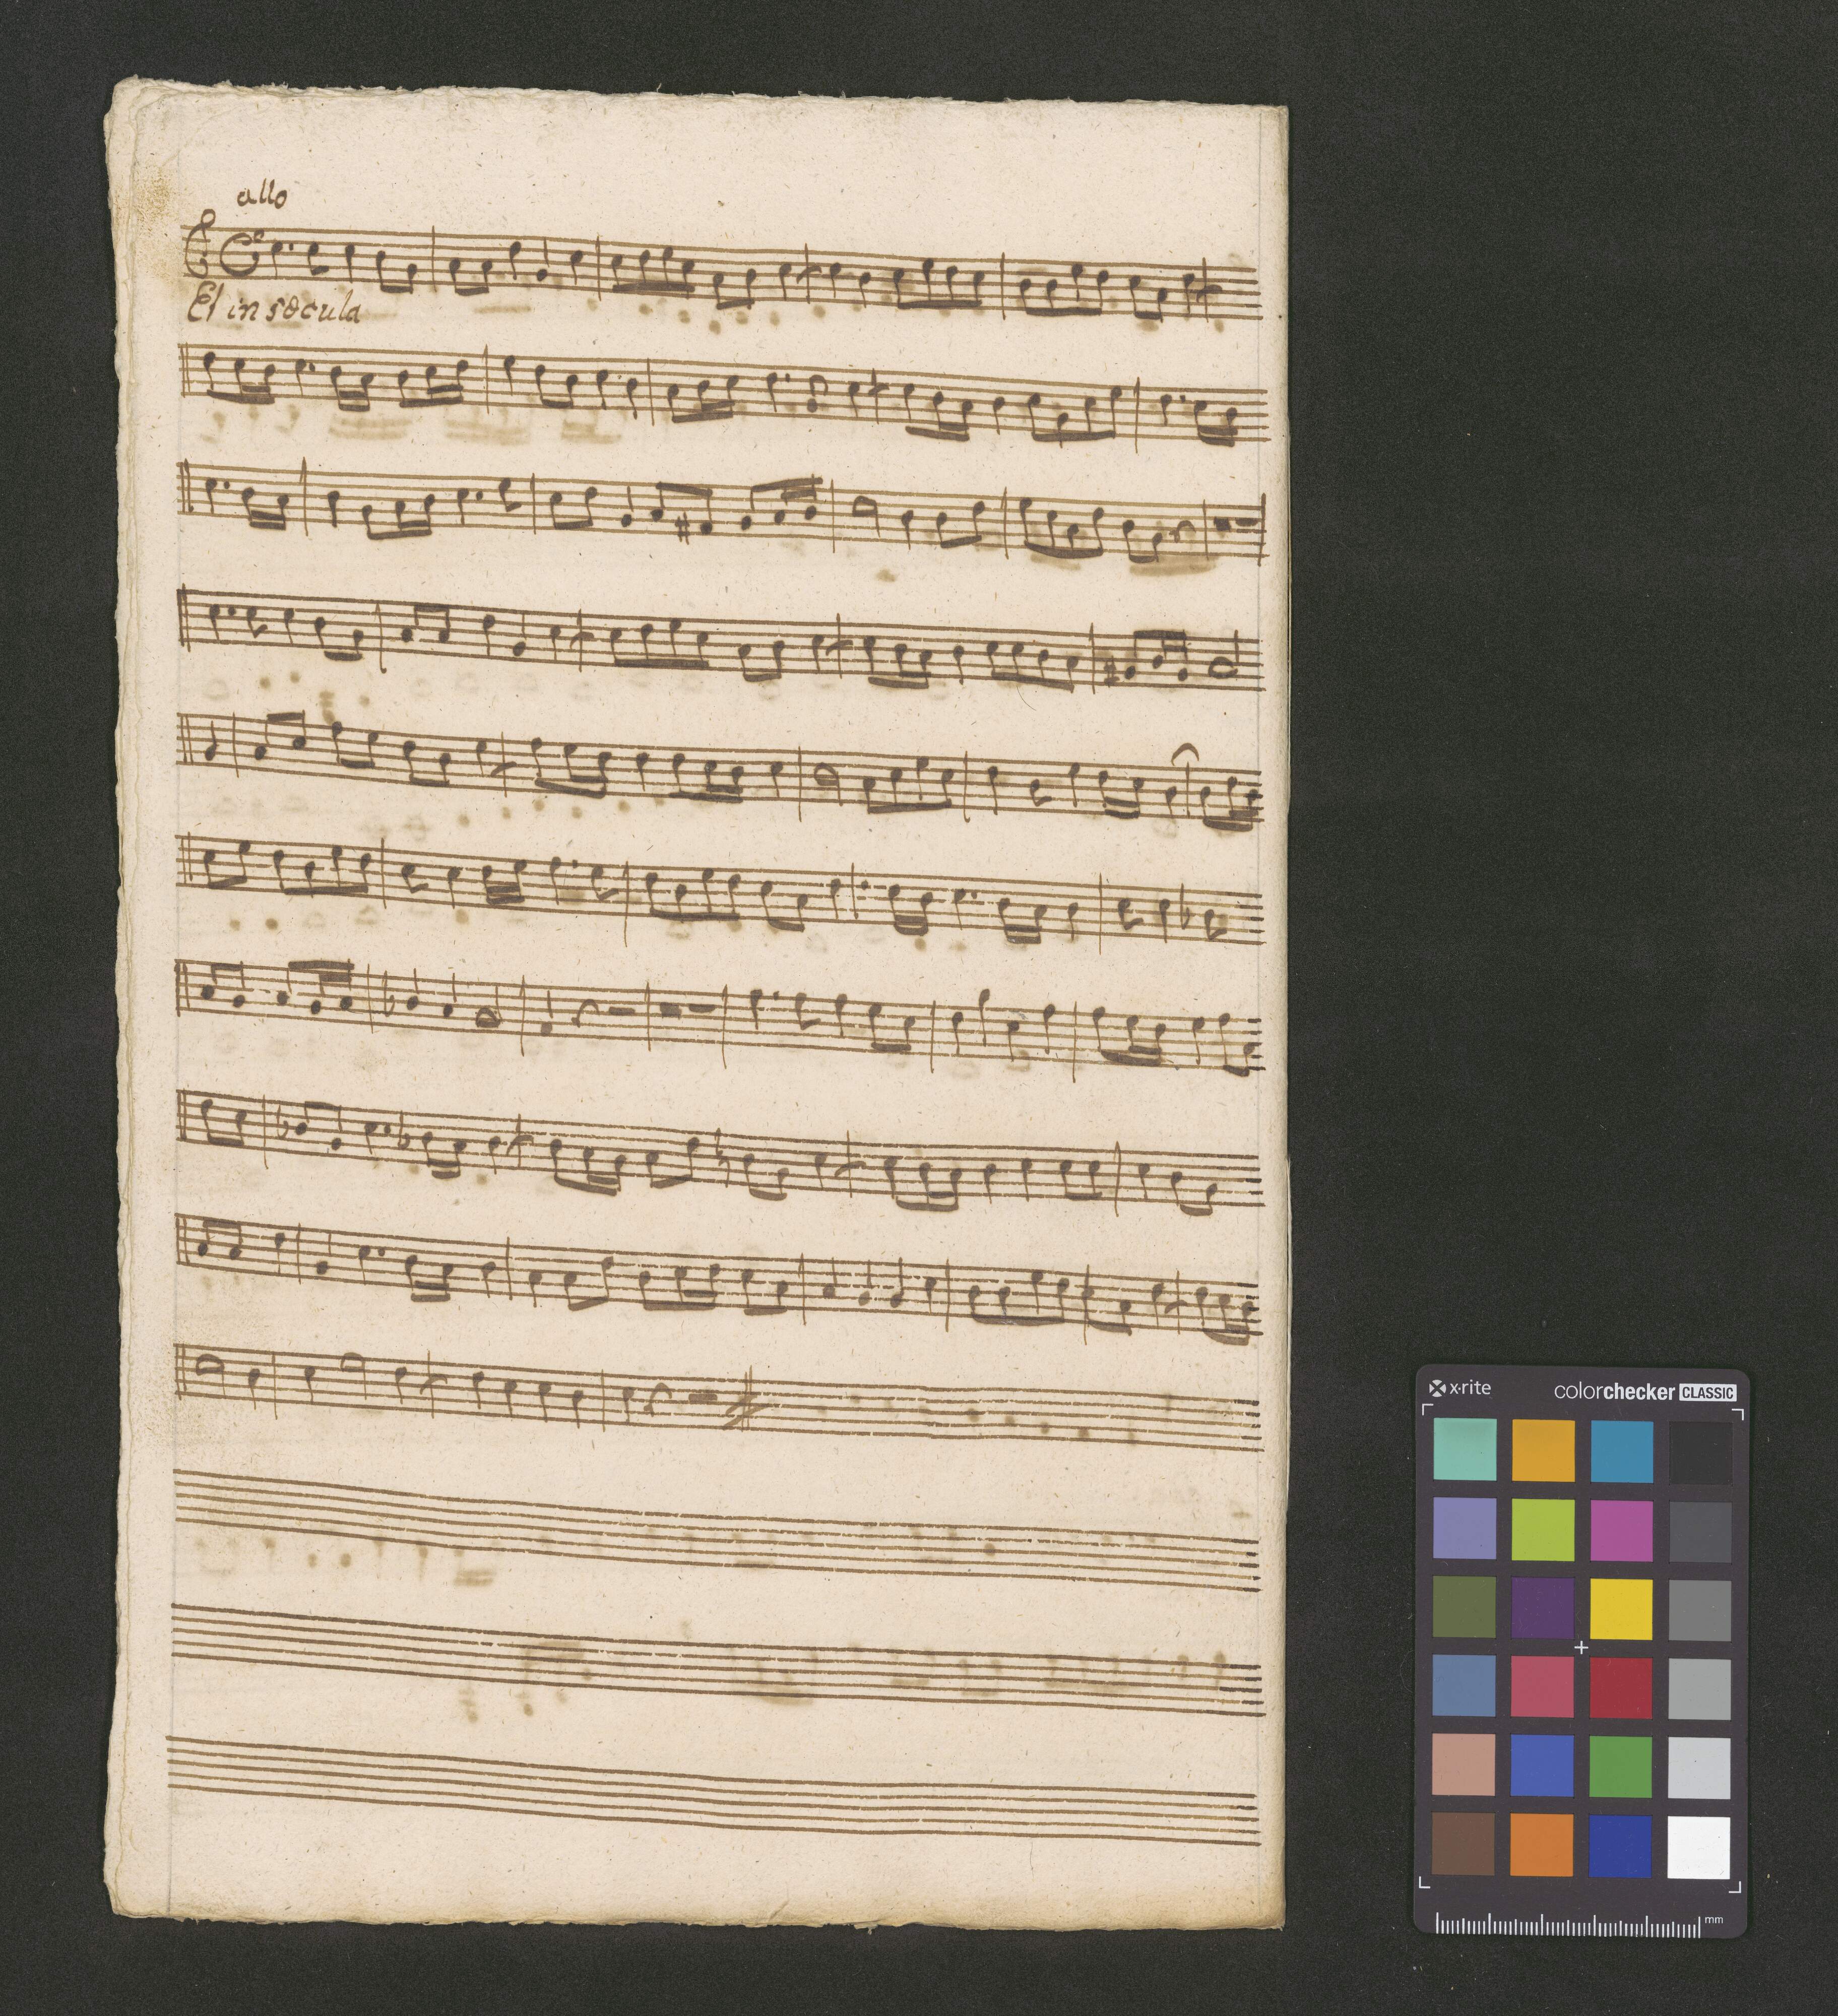 allo
Et in sæcula
x·rite
colorchecker CLASSIC
mm